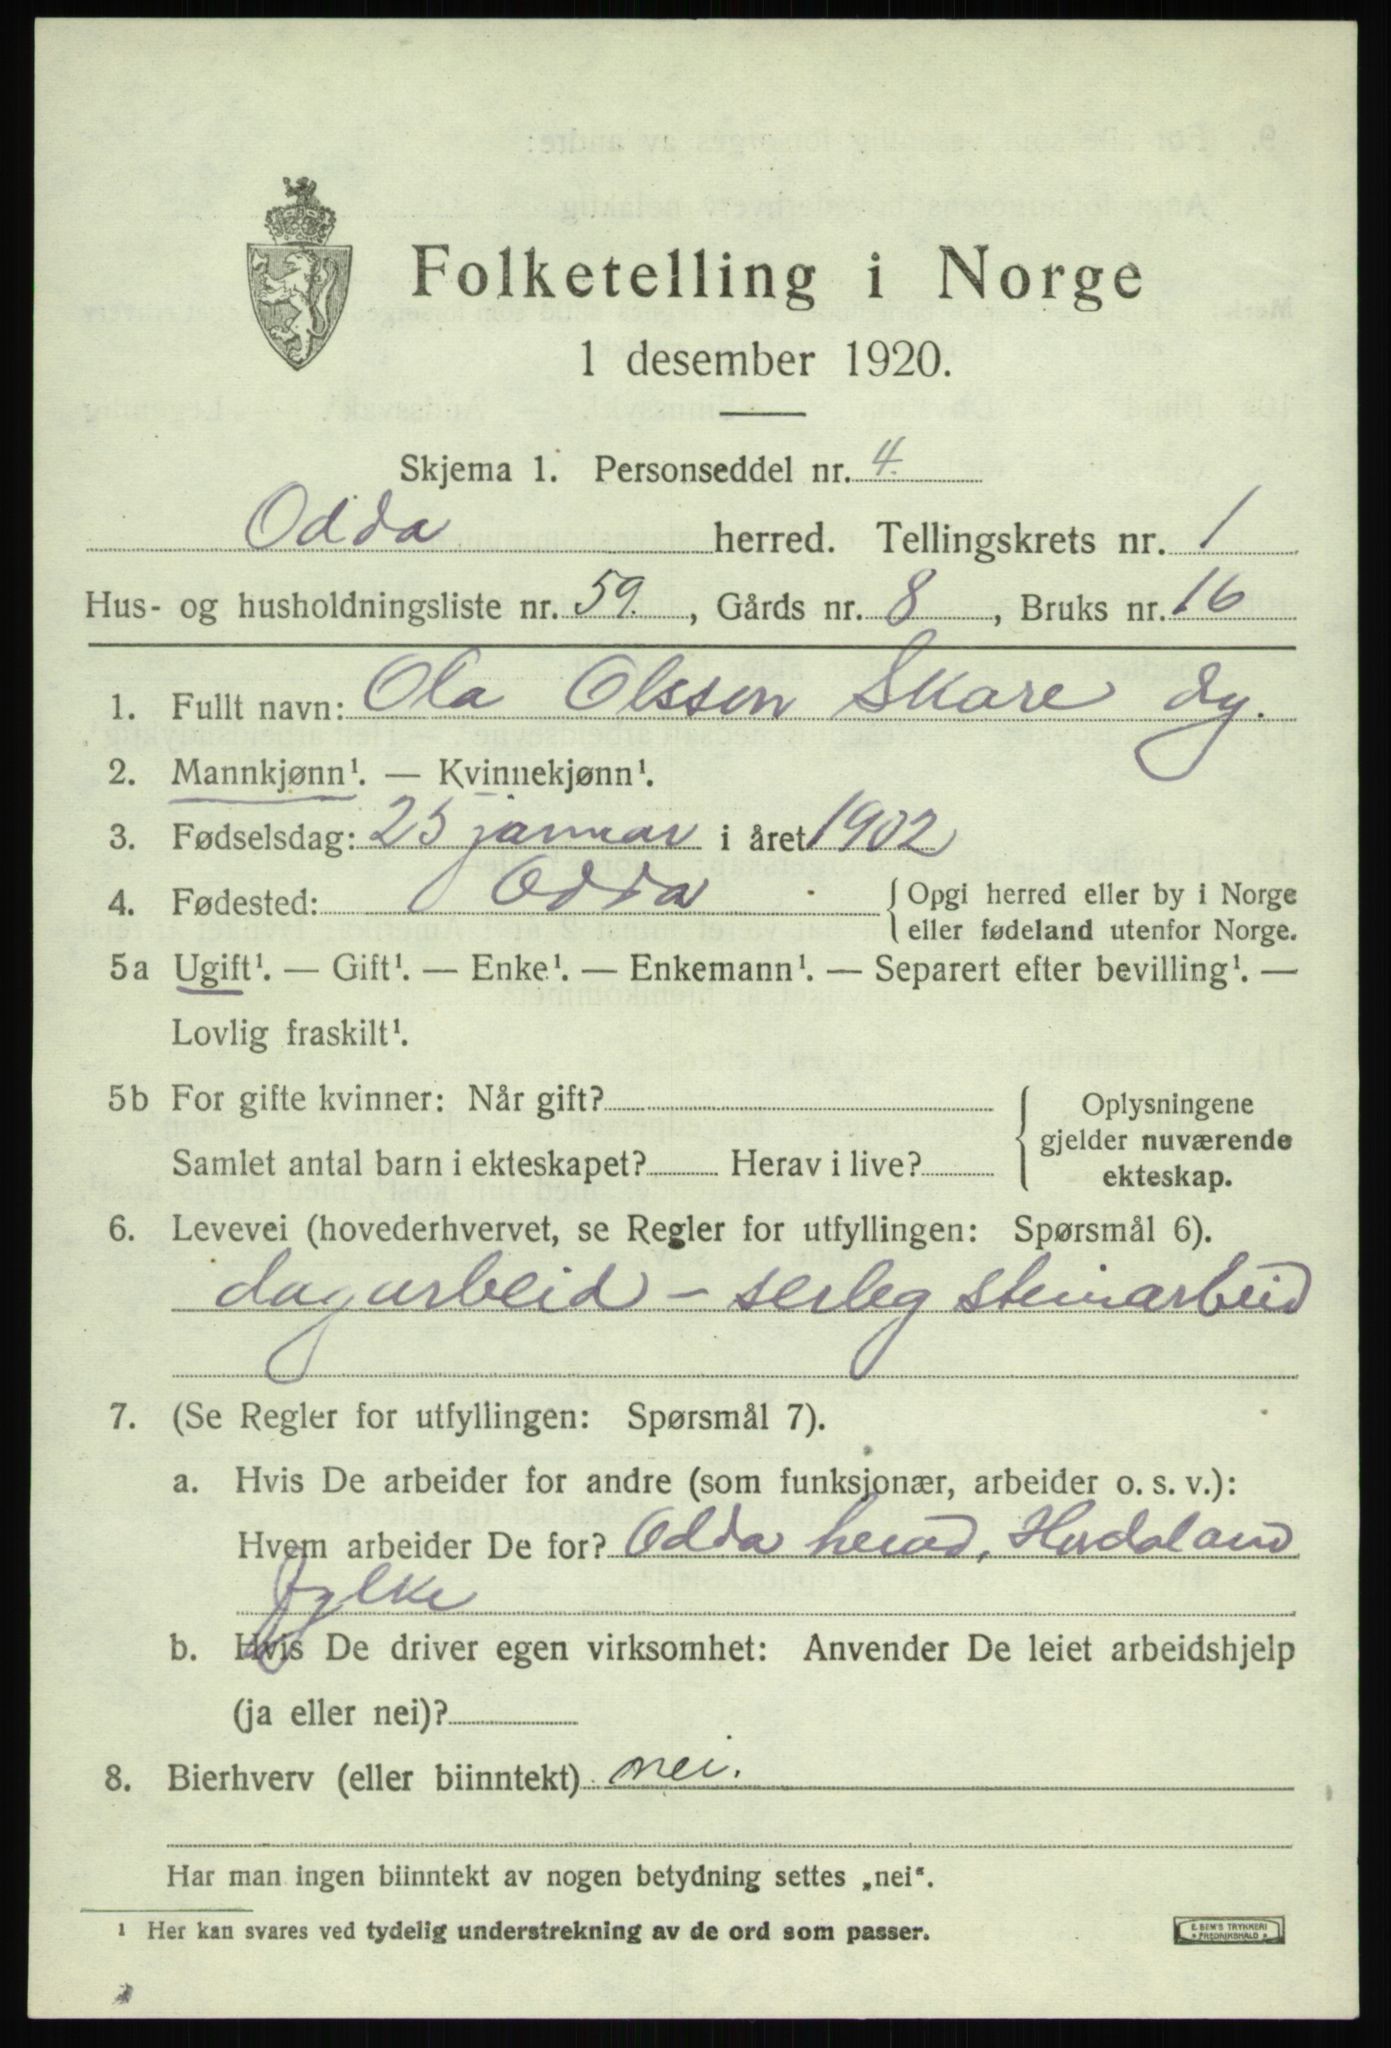 Folketelling i Norge
1 desember 1920.
Skjema 1. Personseddel nr. 4.
Odda herred. Tellingskrets nr. 1
Hus- og husholdningsliste nr. 59., Gårds nr. 8, Bruks nr. 16
1. Fullt navn: Ola Olsson Skare dy.
2. Mannkjønn¹. — Kvinnekjønn¹.
3. Fødselsdag: 25 januar i året 1902
4. Fødested: Odda { Opgi herred eller by i Norge
eller fødeland utenfor Norge.
5a Ugift¹. — Gift¹. — Enke¹. — Enkemann¹. — Separert efter bevilling¹. —
Lovlig fraskilt¹.
5b For gifte kvinner: Når gift?
Samlet antal barn i ekteskapet? Herav i live?
{ Oplysningene
gjelder nuværende
ekteskap.
6. Levevei (hovederhvervet, se Regler for utfyllingen: Spørsmål 6).
dagarbeid - serleg steinarbeid
7. (Se Regler for utfyllingen: Spørsmål 7).
a. Hvis De arbeider for andre (som funksjonær, arbeider o. s. v.):
Hvem arbeider De for? Odda herad, Hordaland
fylke
b. Hvis De driver egen virksomhet: Anvender De leiet arbeidshjelp
(ja eller nei)?
8. Bierhverv (eller biinntekt) nei.
Har man ingen biinntekt av nogen betydning settes „nei“.
¹ Her kan svares ved tydelig understrekning av de ord som passer.
E. SEM'S TRYKKERI
* FREDRIKSHALD *